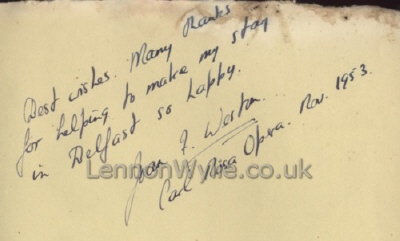 Best wishes. Many thanks
for helping to make my stay
in Belfast so happy.
Joan F. Weston.
Carl Rosa Opera. Nov. 1953.
LennonWylie.co.uk